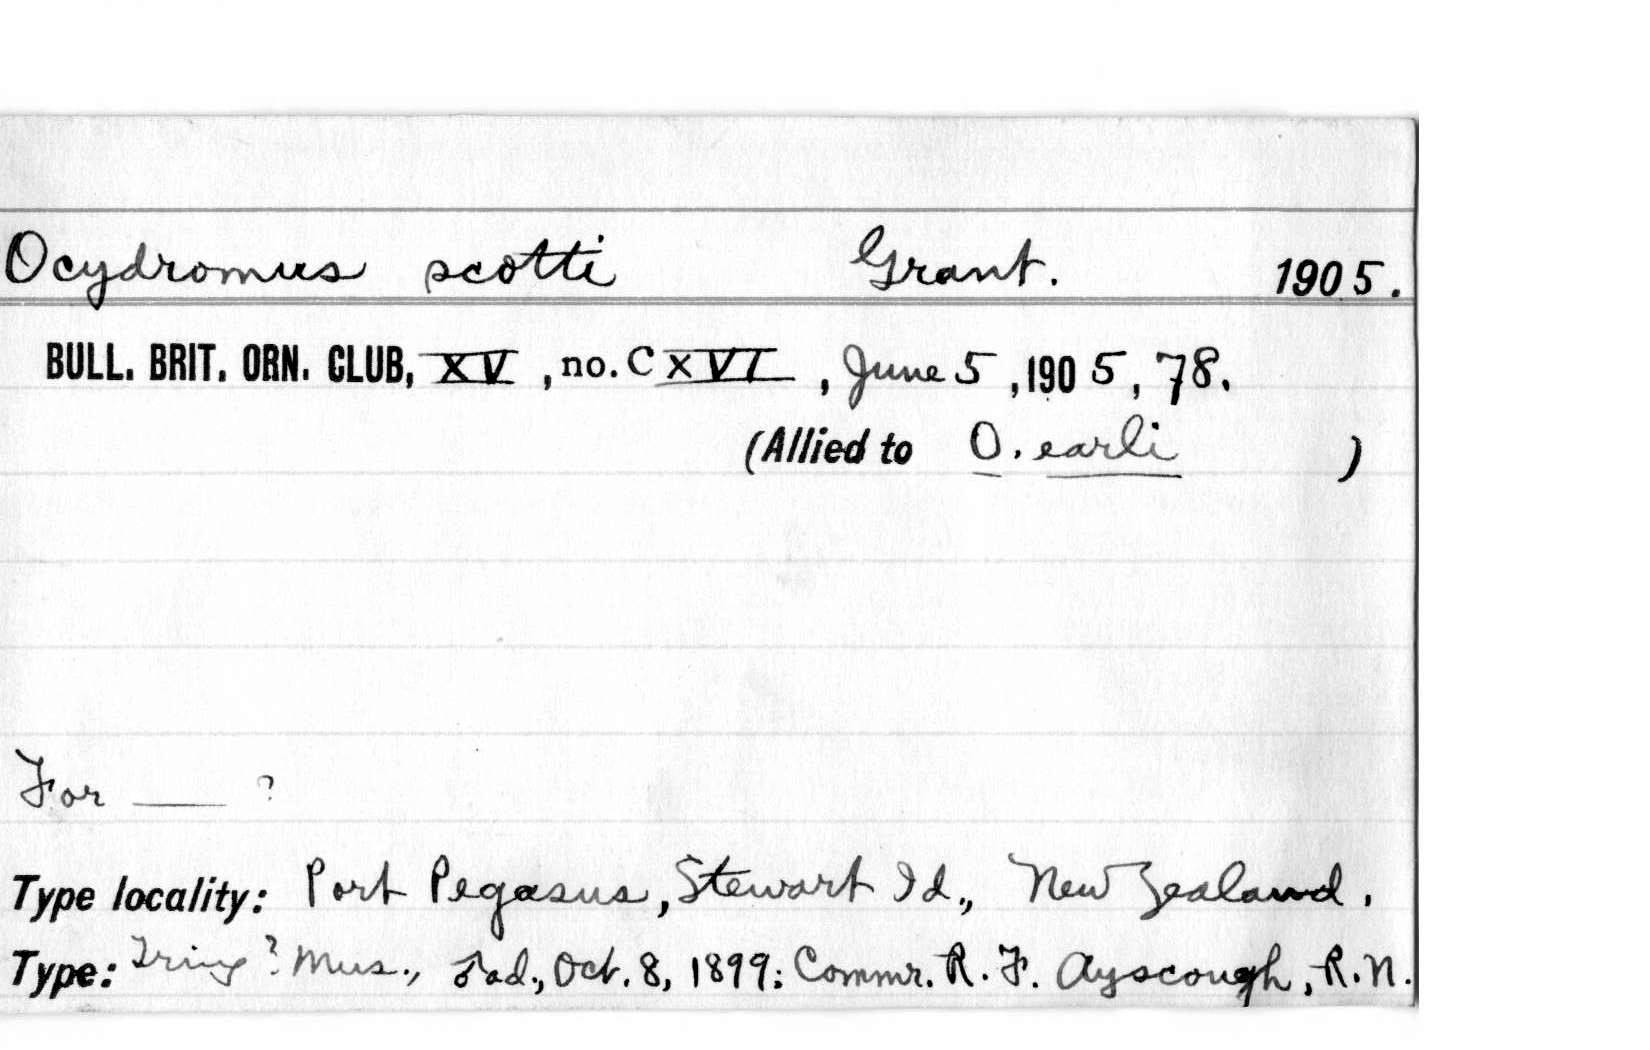 Ocydromus scotti Grant. 1905.
BULL. BRIT. ORN. CLUB, XV, no. CXVI, June 5, 1905, 78.
(Allied to O. earli )
For ___ ?
Type locality: Port Pegasus, Stewart Id., New Zealand.
Type: Tring? Mus., ad., Oct. 8, 1899; Commr. R. F. Ayscough, R.N.